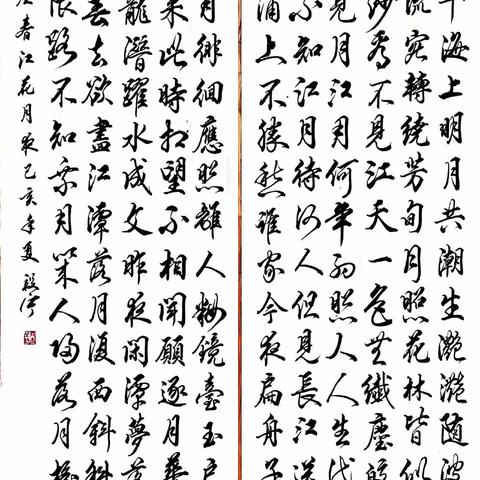 平海上明月共潮生灧灧隨波
流宛轉繞芳甸月照花林皆似
沙看不見江天一色無纖塵皎
見月江月何年初照人人生代
不知江月待何人但見長江送
浦上不勝愁誰家今夜扁舟子
月徘徊應照離人妝鏡臺玉戶
來此時相望不相聞願逐月華
龍潛躍水成文昨夜閑潭夢落
春去欲盡江潭落月復西斜斜
限路不知乘月幾人歸落月搖
春江花月夜己亥年夏